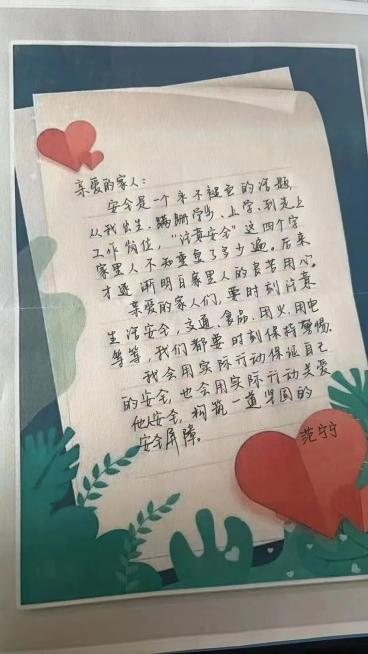 亲爱的家人：
安全是一个永不褪色的话题，
从我出生、蹒跚学步、上学、到走上
工作岗位，“注意安全”这四个字
家里人不知重复了多少遍。后来
才逐渐明白家里人的良苦用心。
亲爱的家人们，要时刻注意
生活安全，交通、食品、用火、用电
等等，我们都要时刻保持警惕。
我会用实际行动保证自己
的安全，也会用实际行动关爱
他人安全，构筑一道坚固的
安全屏障。
范宁宁